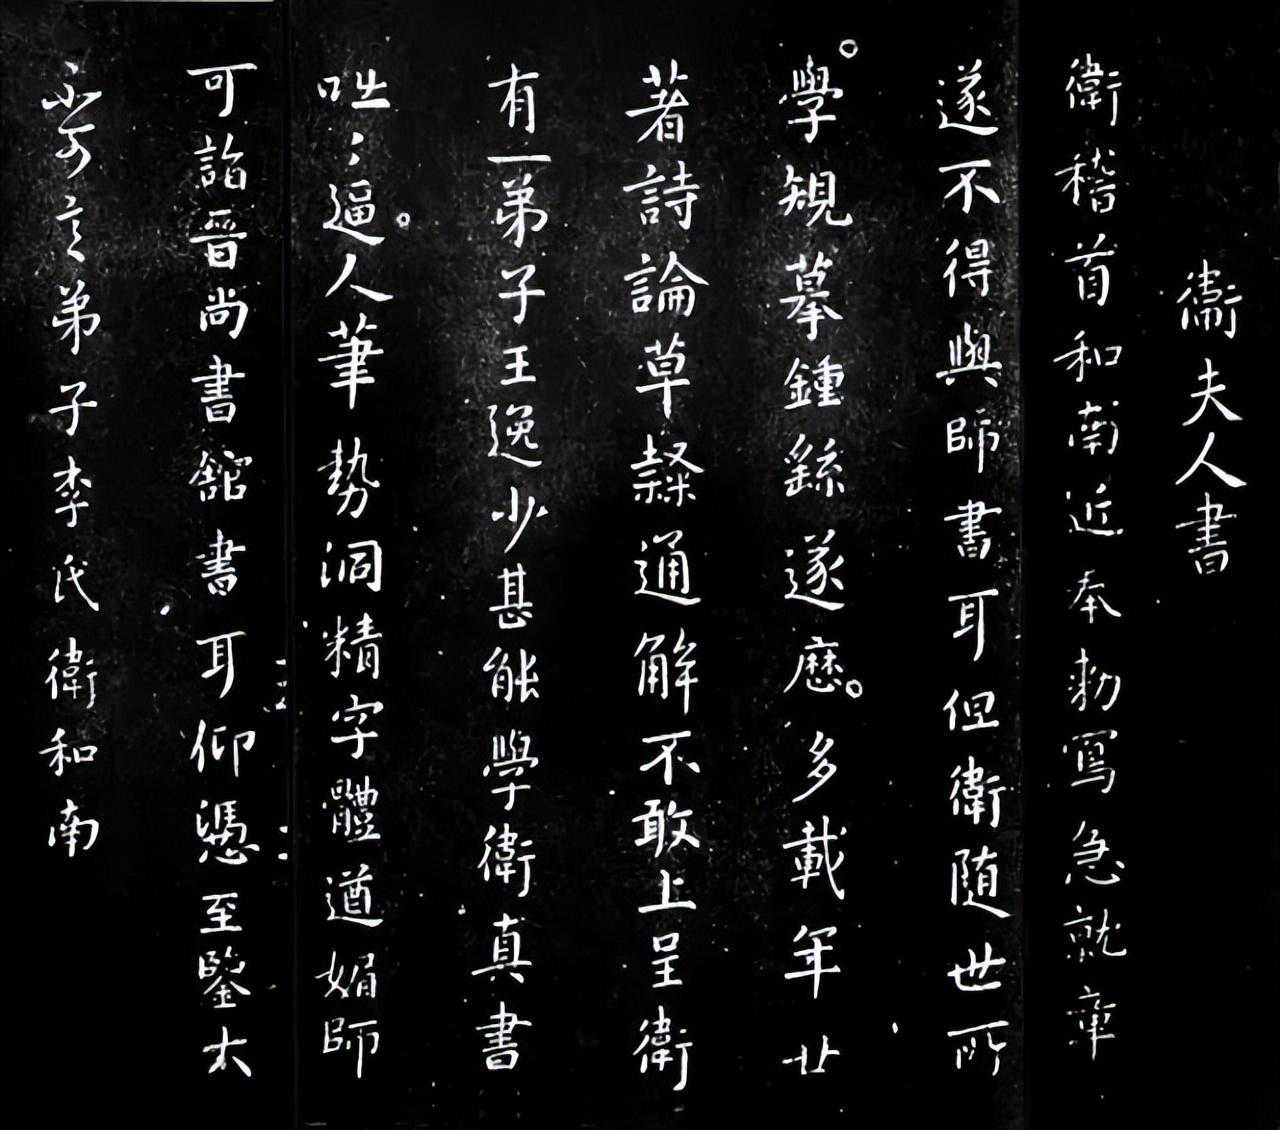 衛夫人書
衛稽首和南近奉勑寫急就章
遂不得與師書耳但衛随世所
學規摹鍾繇遂歷多載年廿
著詩論草隸通解不敢上呈衛
有一弟子王逸少甚能學衛真書
咄〻逼人筆勢洞精字體遒媚師
可詣晉尚書館書耳仰憑至鑒大
不可言弟子李氏衛和南